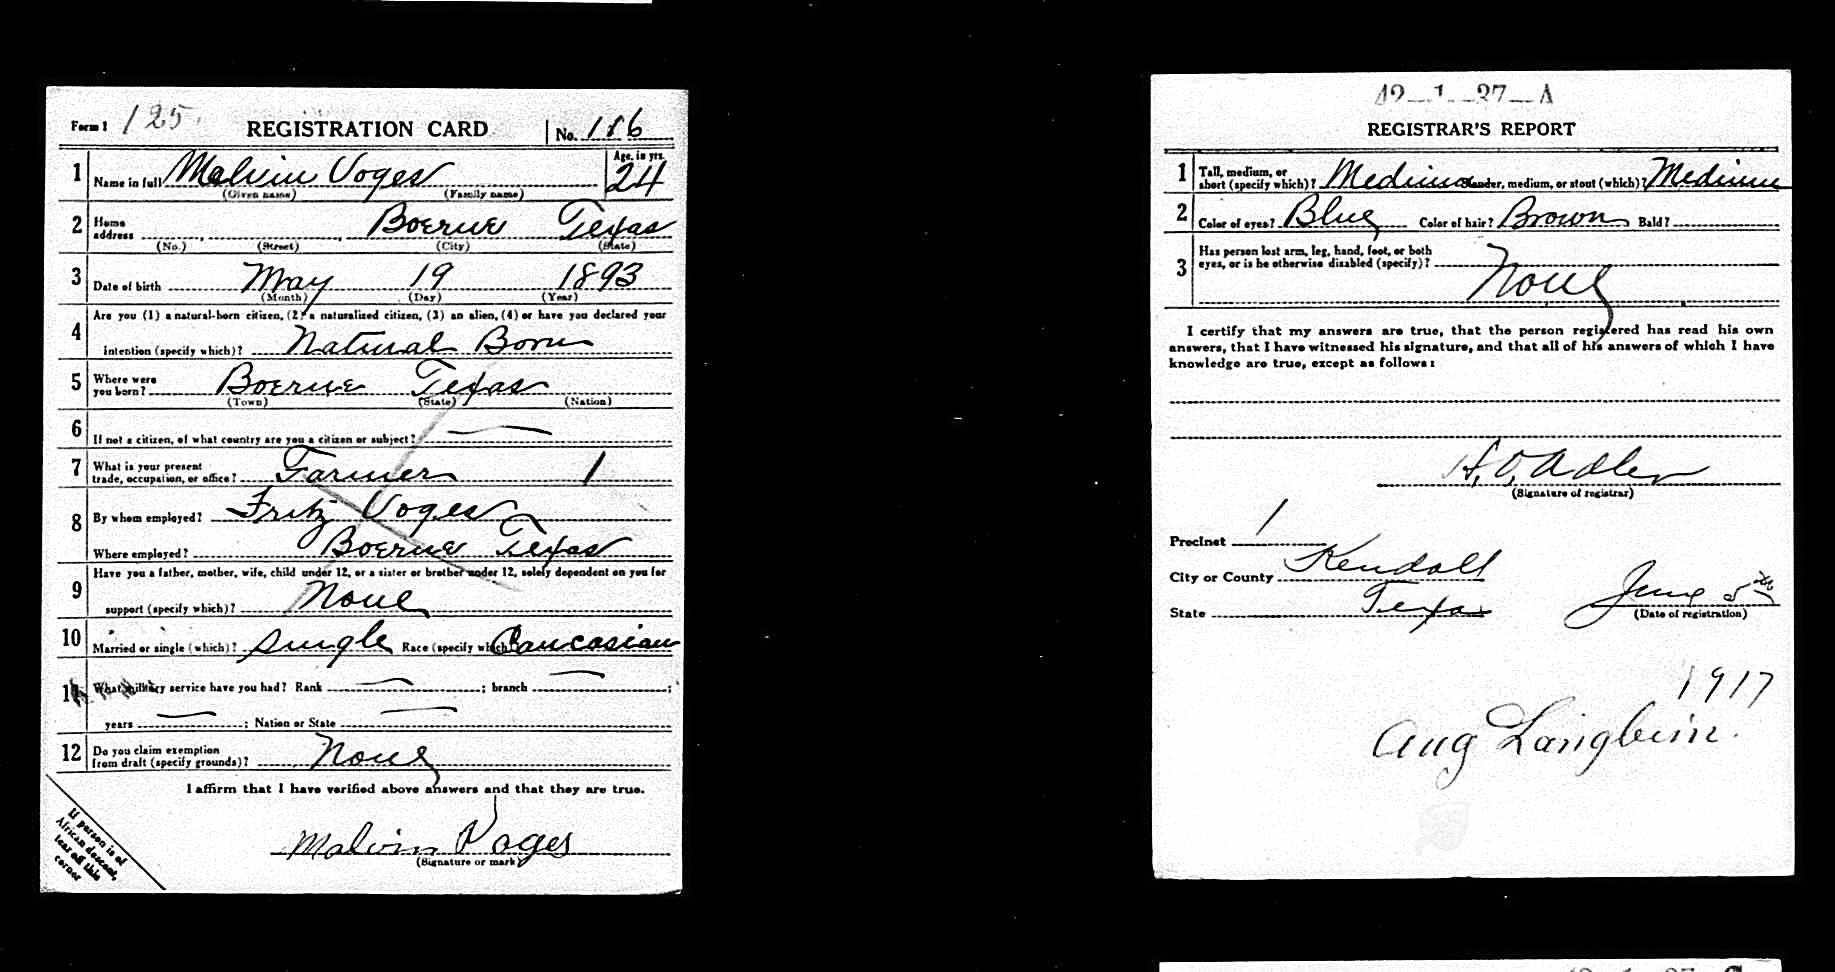 Form 1 125. REGISTRATION CARD No. 186
1 Name in full Malvin Voges Age, in yrs. 24
(Given name) (Family name)
2 Home address Boerne Texas
(No.) (Street) (City) (State)
3 Date of birth May 19 1893
(Month) (Day) (Year)
4 Are you (1) a natural-born citizen, (2) a naturalized citizen, (3) an alien, (4) or have you declared your
intention (specify which)? Natural Born
5 Where were you born? Boerne Texas
(Town) (State) (Nation)
6 If not a citizen, of what country are you a citizen or subject? —
7 What is your present trade, occupation, or office? Farmer 1
8 By whom employed? Fritz Voges
Where employed? Boerne Texas
9 Have you a father, mother, wife, child under 12, or a sister or brother under 12, solely dependent on you for
support (specify which)? None
10 Married or single (which)? Single Race (specify which)? Caucasian
11 What military service have you had? Rank — ; branch — ;
years — ; Nation or State —
12 Do you claim exemption from draft (specify grounds)? None
I affirm that I have verified above answers and that they are true.
Malvin Voges
(Signature or mark)
If person is of
African descent,
tear off this
corner
42—1—37—A
REGISTRAR'S REPORT
1 Tall, medium, or short (specify which)? Medium Slender, medium, or stout (which)? Medium
2 Color of eyes? Blue Color of hair? Brown Bald?
3 Has person lost arm, leg, hand, foot, or both
eyes, or is he otherwise disabled (specify)? None
I certify that my answers are true, that the person registered has read his own
answers, that I have witnessed his signature, and that all of his answers of which I have
knowledge are true, except as follows:
H. O. Adler
(Signature of registrar)
Precinct 1
City or County Kendall
State Texas June 5th
(Date of registration)
1917
Aug Langbein.